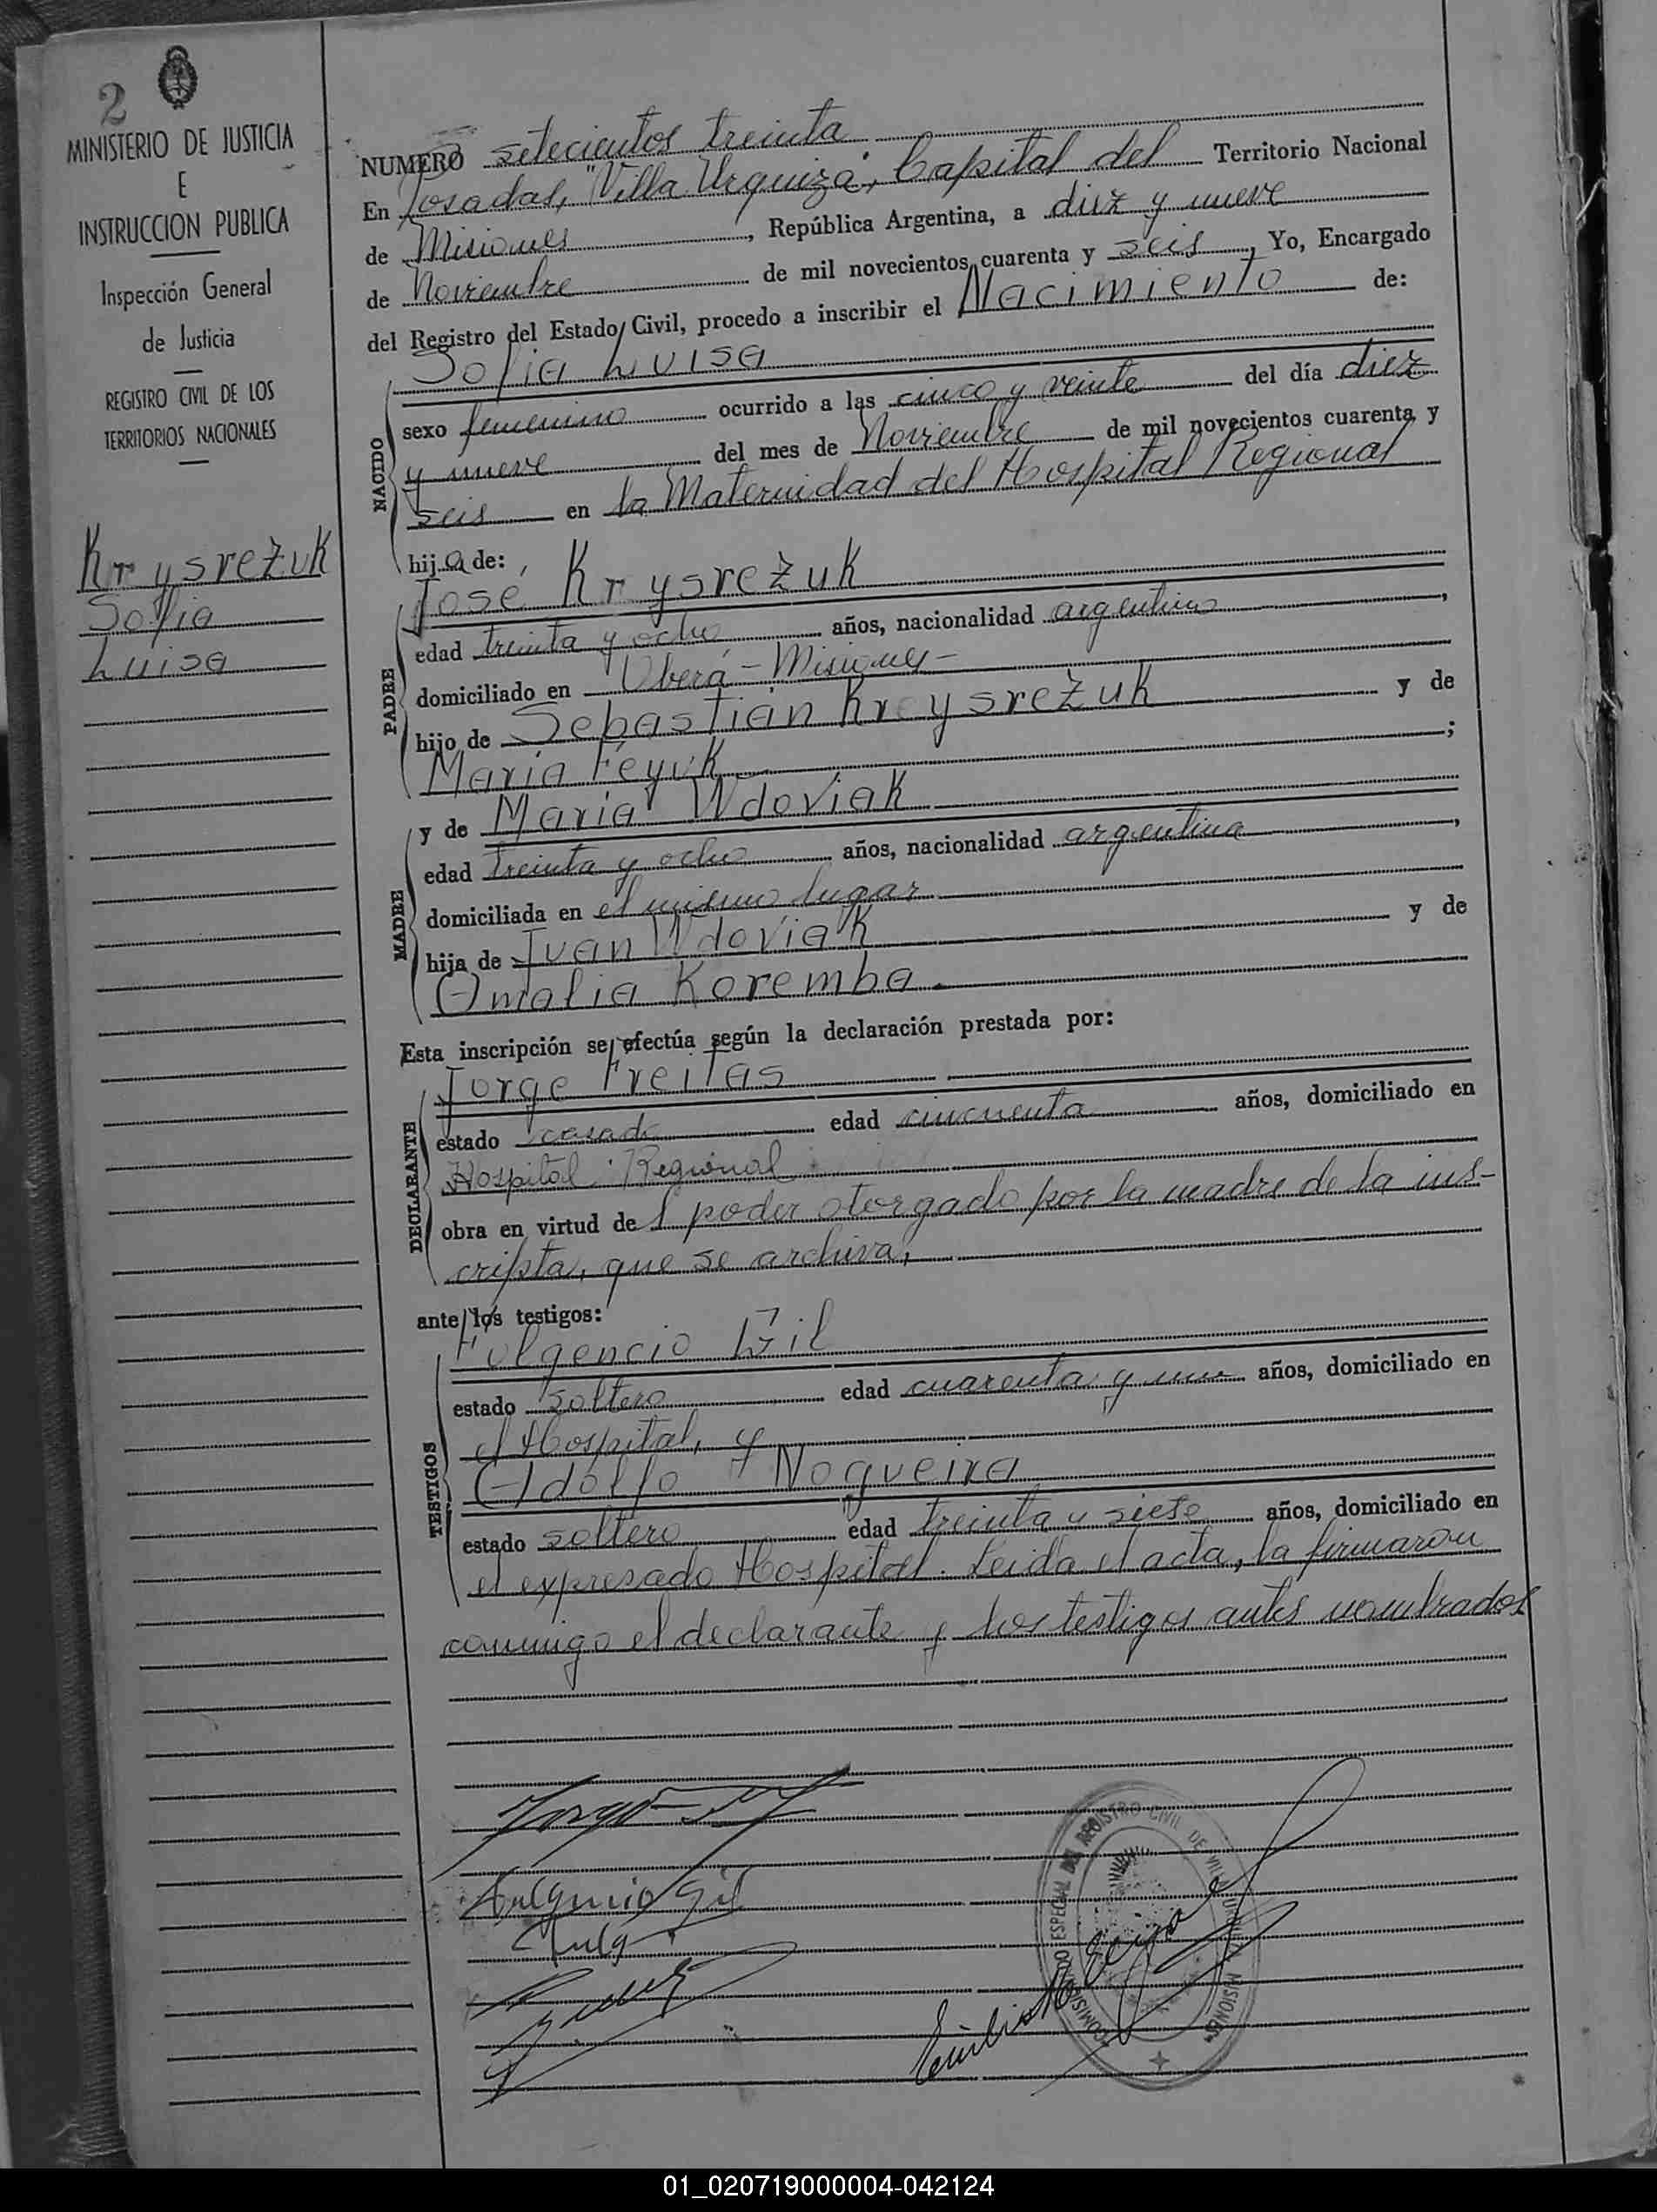 2
MINISTERIO DE JUSTICIA
E
INSTRUCCION PUBLICA
Inspección General
de Justicia
REGISTRO CIVIL DE LOS
TERRITORIOS NACIONALES
Krysrežuk
Sofia
Luisa
NUMERO setecientos treinta
En Posadas, "Villa Urquiza", Capital del Territorio Nacional
de Misiones, República Argentina, a diez y nueve
de Noviembre de mil novecientos cuarenta y seis, Yo, Encargado
del Registro del Estado Civil, procedo a inscribir el Nacimiento de:
Sofia Luisa
NACIDO
sexo femenino ocurrido a las cinco y veinte del día diez
y nueve del mes de Noviembre de mil novecientos cuarenta y
seis en la Maternidad del Hospital Regional
hija de:
José Krysrežuk
PADRE
edad treinta y ocho años, nacionalidad argentino,
domiciliado en Oberá - Misiones -
hijo de Sebastián Kreysrežuk y de
María Feyuk;
y de María Wdoviak
MADRE
edad treinta y ocho años, nacionalidad argentina,
domiciliada en el mismo lugar
hija de Ivan Wdoviak y de
Amalia Koremba.
Esta inscripción se efectúa según la declaración prestada por:
Jorge Freitas
DECLARANTE
estado casado edad cincuenta años, domiciliado en
Hospital Regional
obra en virtud del poder otorgado por la madre de la ins-
cripta, que se archiva,
ante los testigos:
Fulgencio Gil
TESTIGOS
estado soltero edad cuarenta y un años, domiciliado en
el Hospital, y
Adolfo Nogueira
estado soltero edad treinta y siete años, domiciliado en
el expresado Hospital. Leida el acta, la firmaron
conmigo el declarante y los testigos antes nombrados
Fulgencio Gil
REGISTRO CIVIL DE VILLA URQUIZA MISIONES
01_020719000004-042124